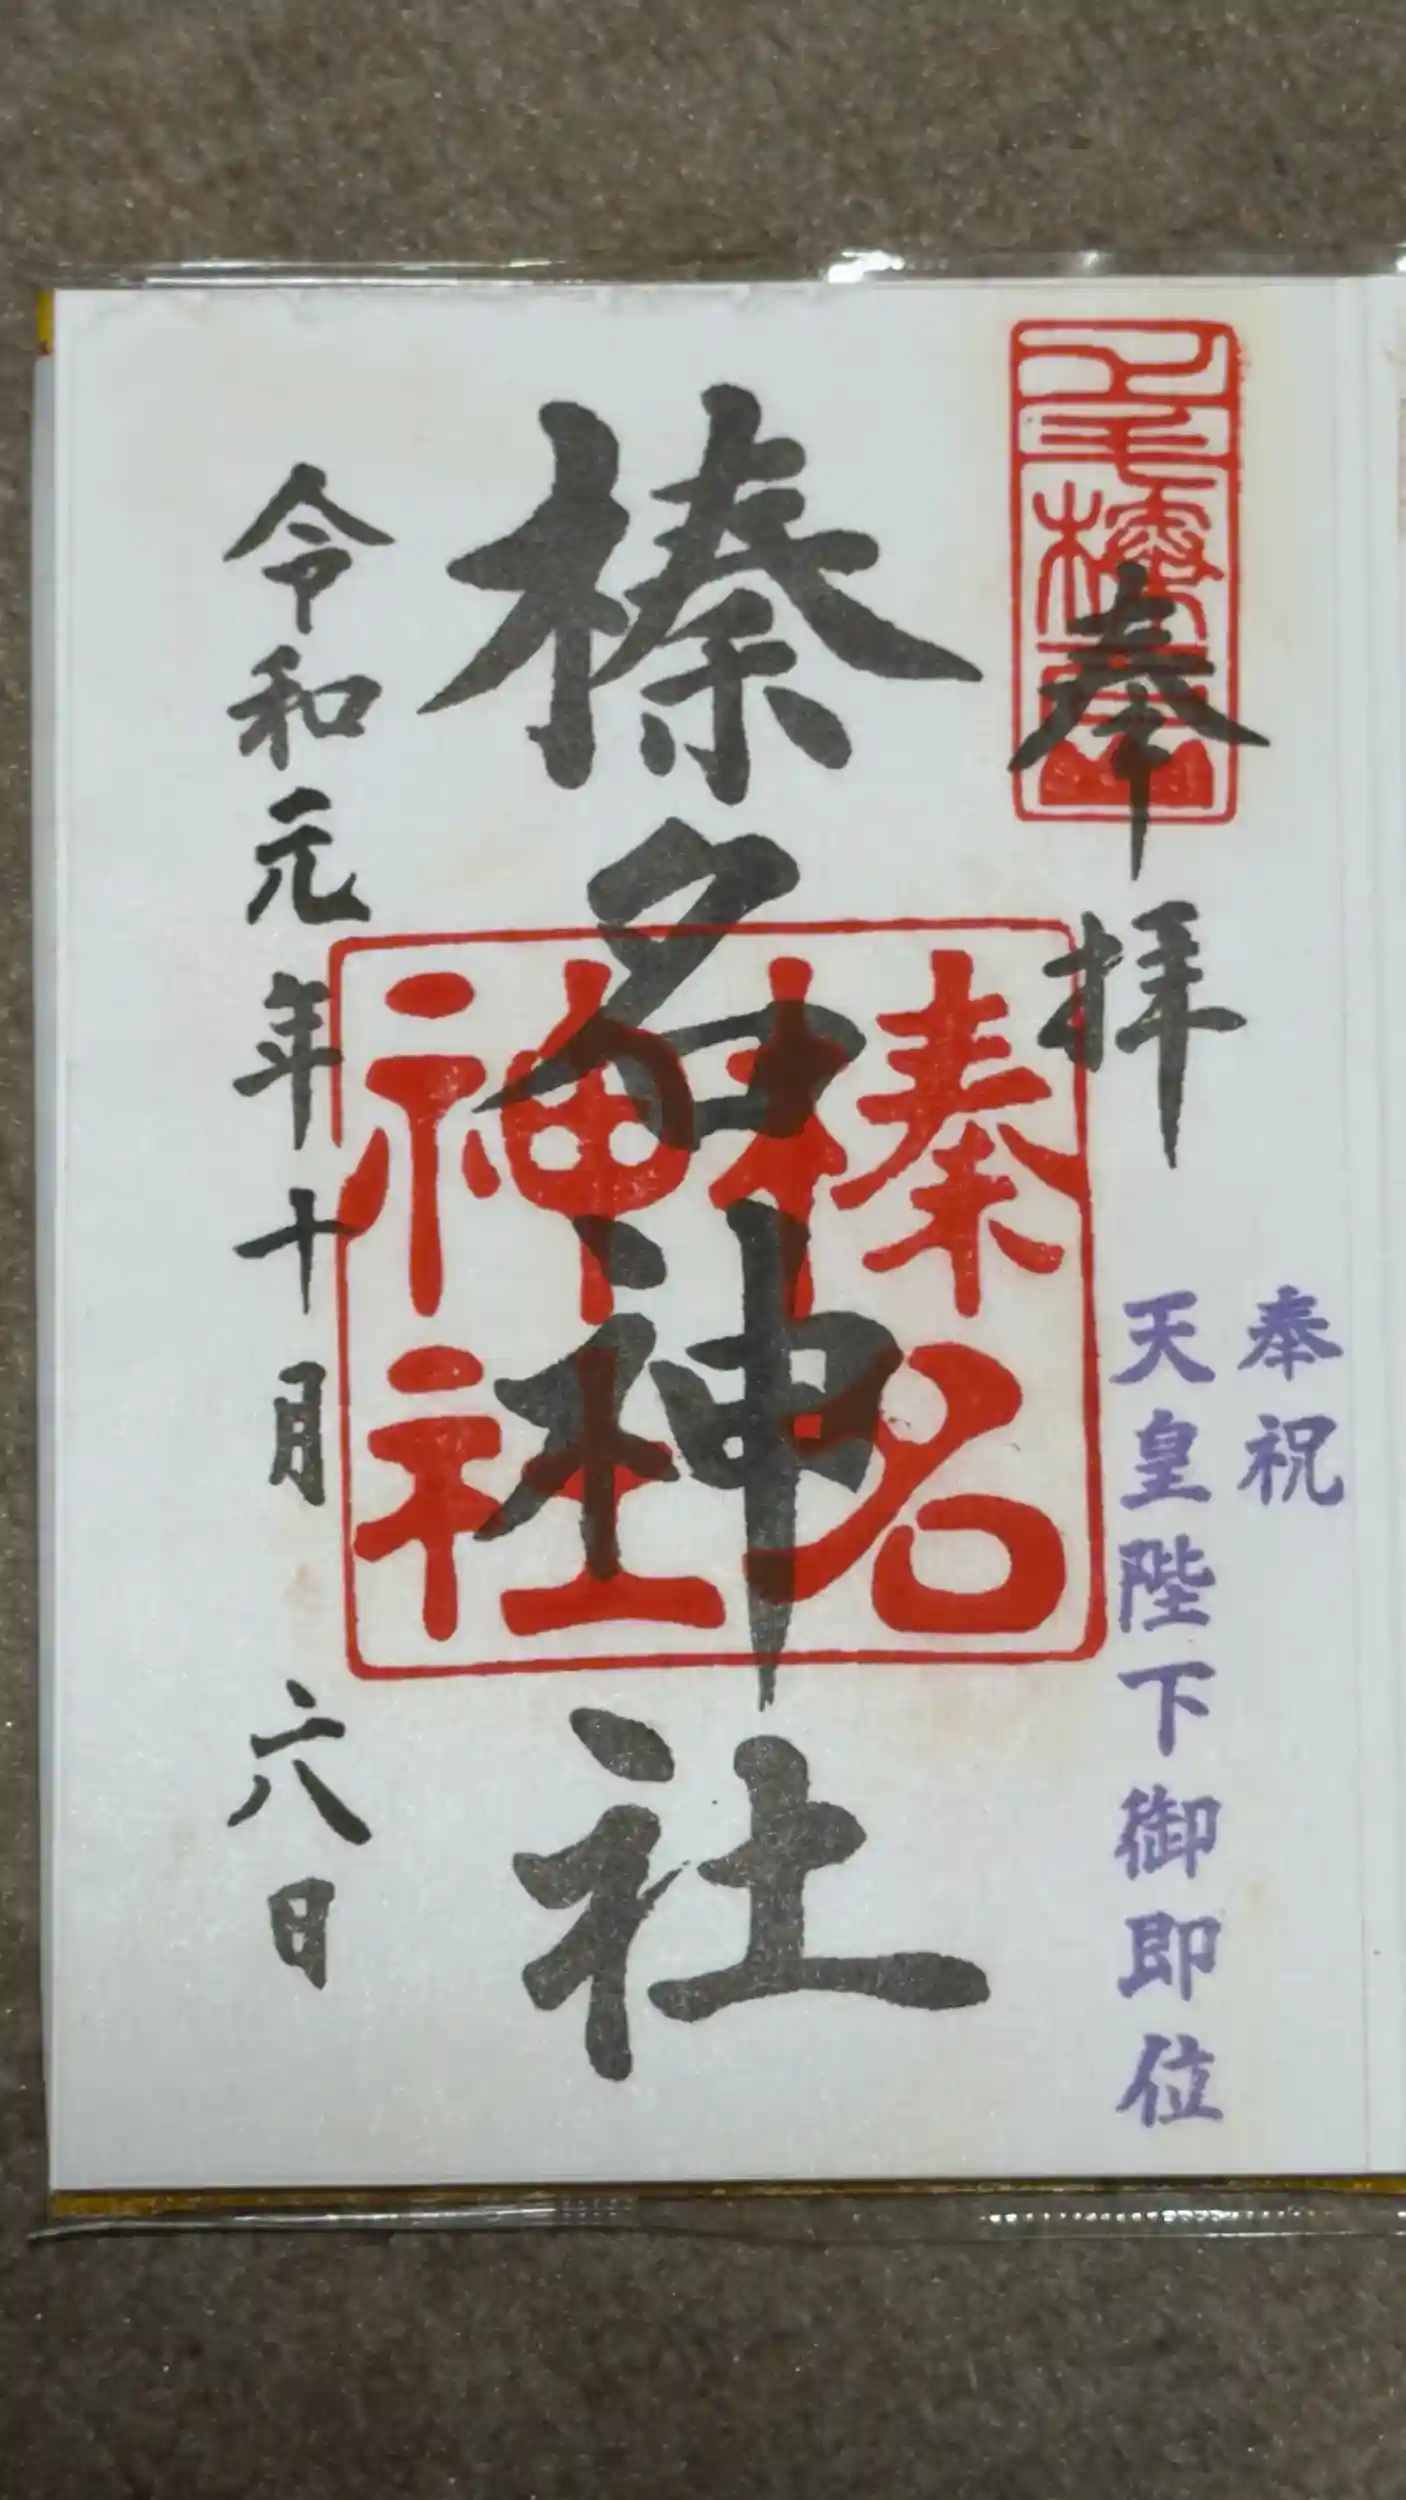 奉祝
天皇陛下御即位
奉拝
榛名神社
榛名
神社
令和元年十月六日